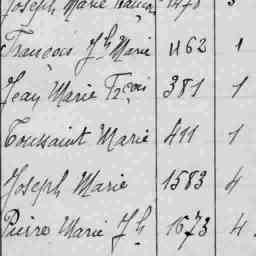 Joseph Marie
François Jh Marie 1162 1
Jean Marie Fçois 381 1
Toussaint Marie 411 1
Joseph Marie 1583 4
Pierre Marie Jh 1673 4